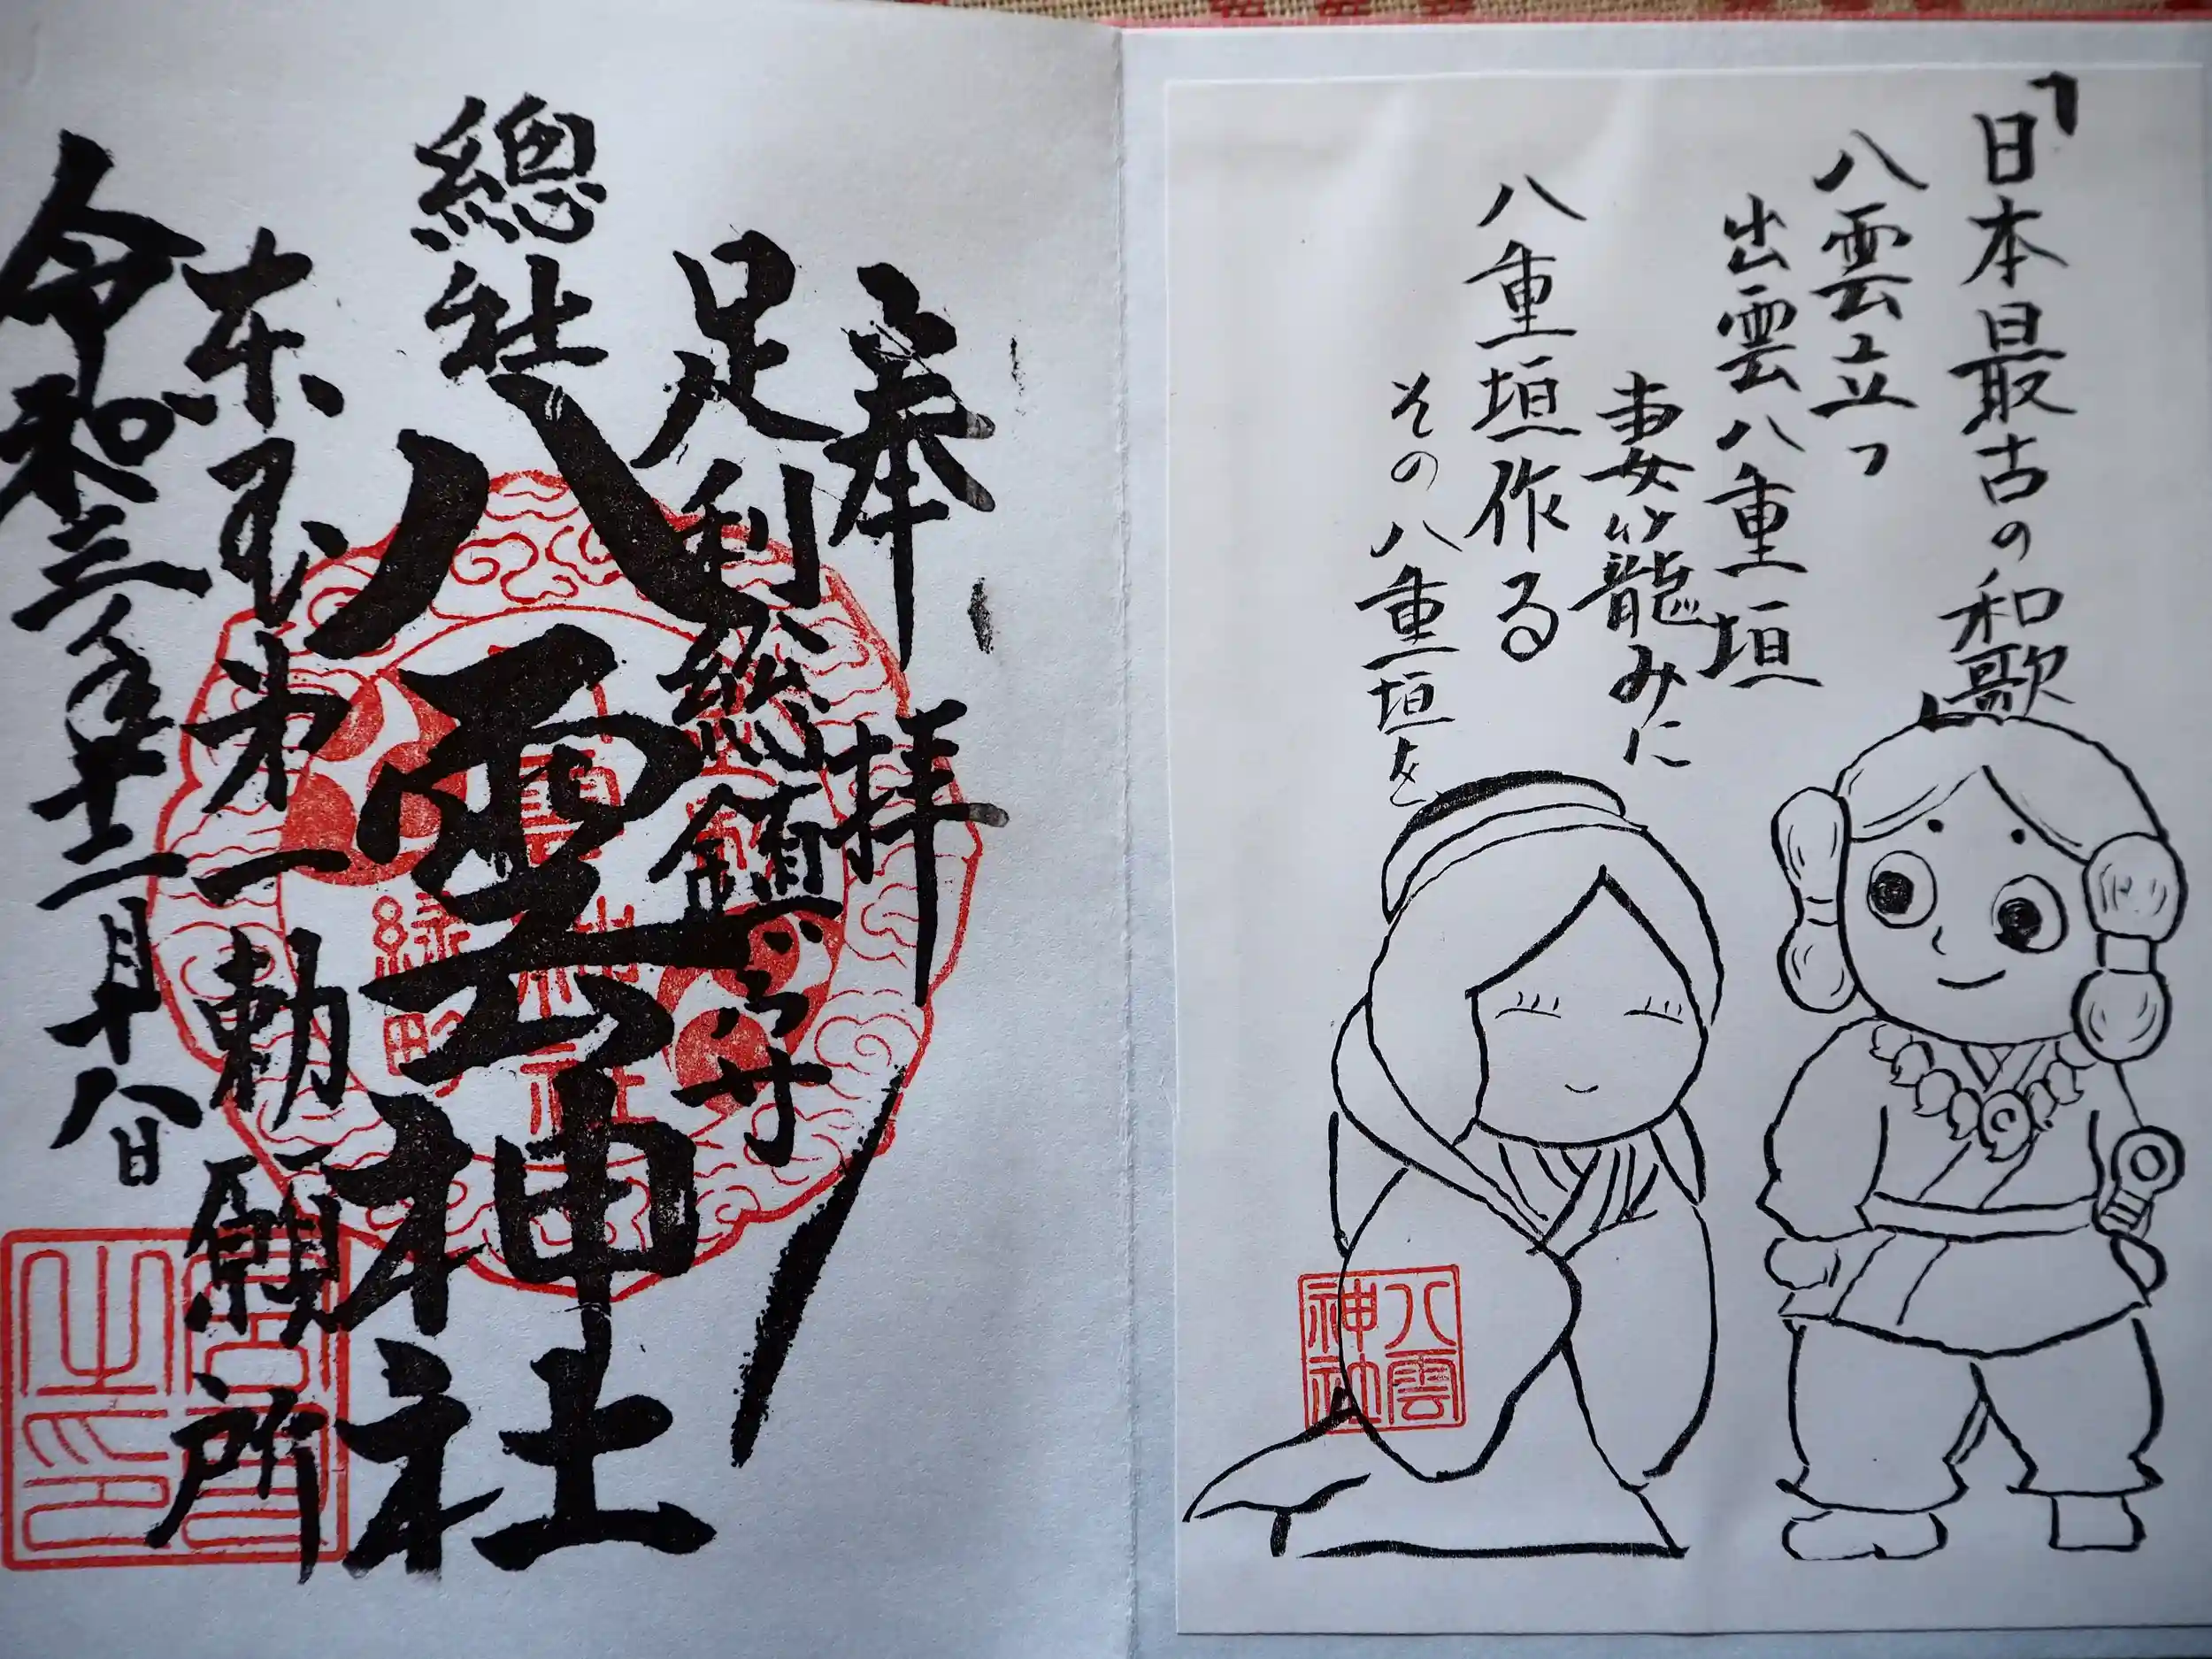 「日本最古の和歌」
八雲立つ
出雲八重垣
妻籠みに
八重垣作る
その八重垣を
八雲
神社
奉拝
足利総鎮守
總社
八雲神社
東国第一勅願所
令和三年十二月十八日
八雲神社
緑町
宮司
之印